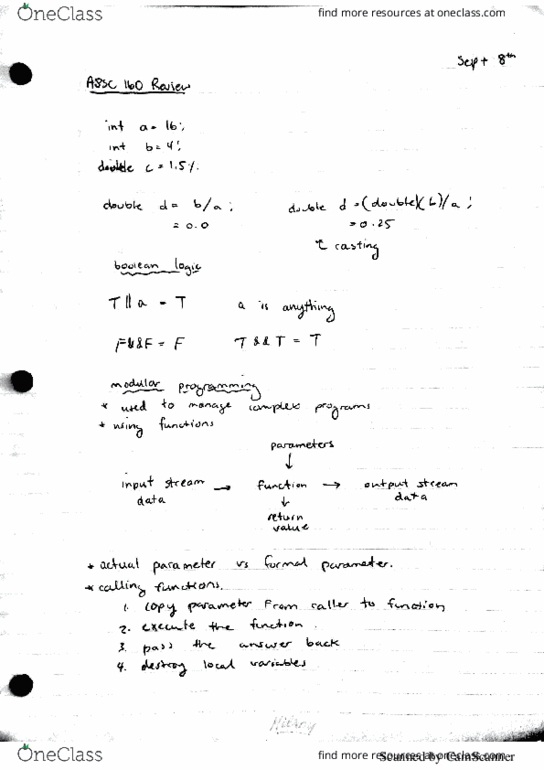 OneClass
find more resources at oneclass.com
Sept 8th
APSC 160 Review
int a = 16;
int b = 4;
double c = 1.5;
double d = b/a;
double d = (double)(b)/a;
= 0.0
= 0.25
casting
boolean logic
T || a = T
a is anything
F && F = F
T && T = T
modular programming
* used to manage complex programs
* using functions
parameters
input stream data → function → output stream data
return value
* actual parameter vs formal parameter.
* calling functions.
1. copy parameter from caller to function
2. execute the function.
3. pass the answer back
4. destroy local variables
OneClass
find more resources at oneclass.com
Scanned by CamScanner